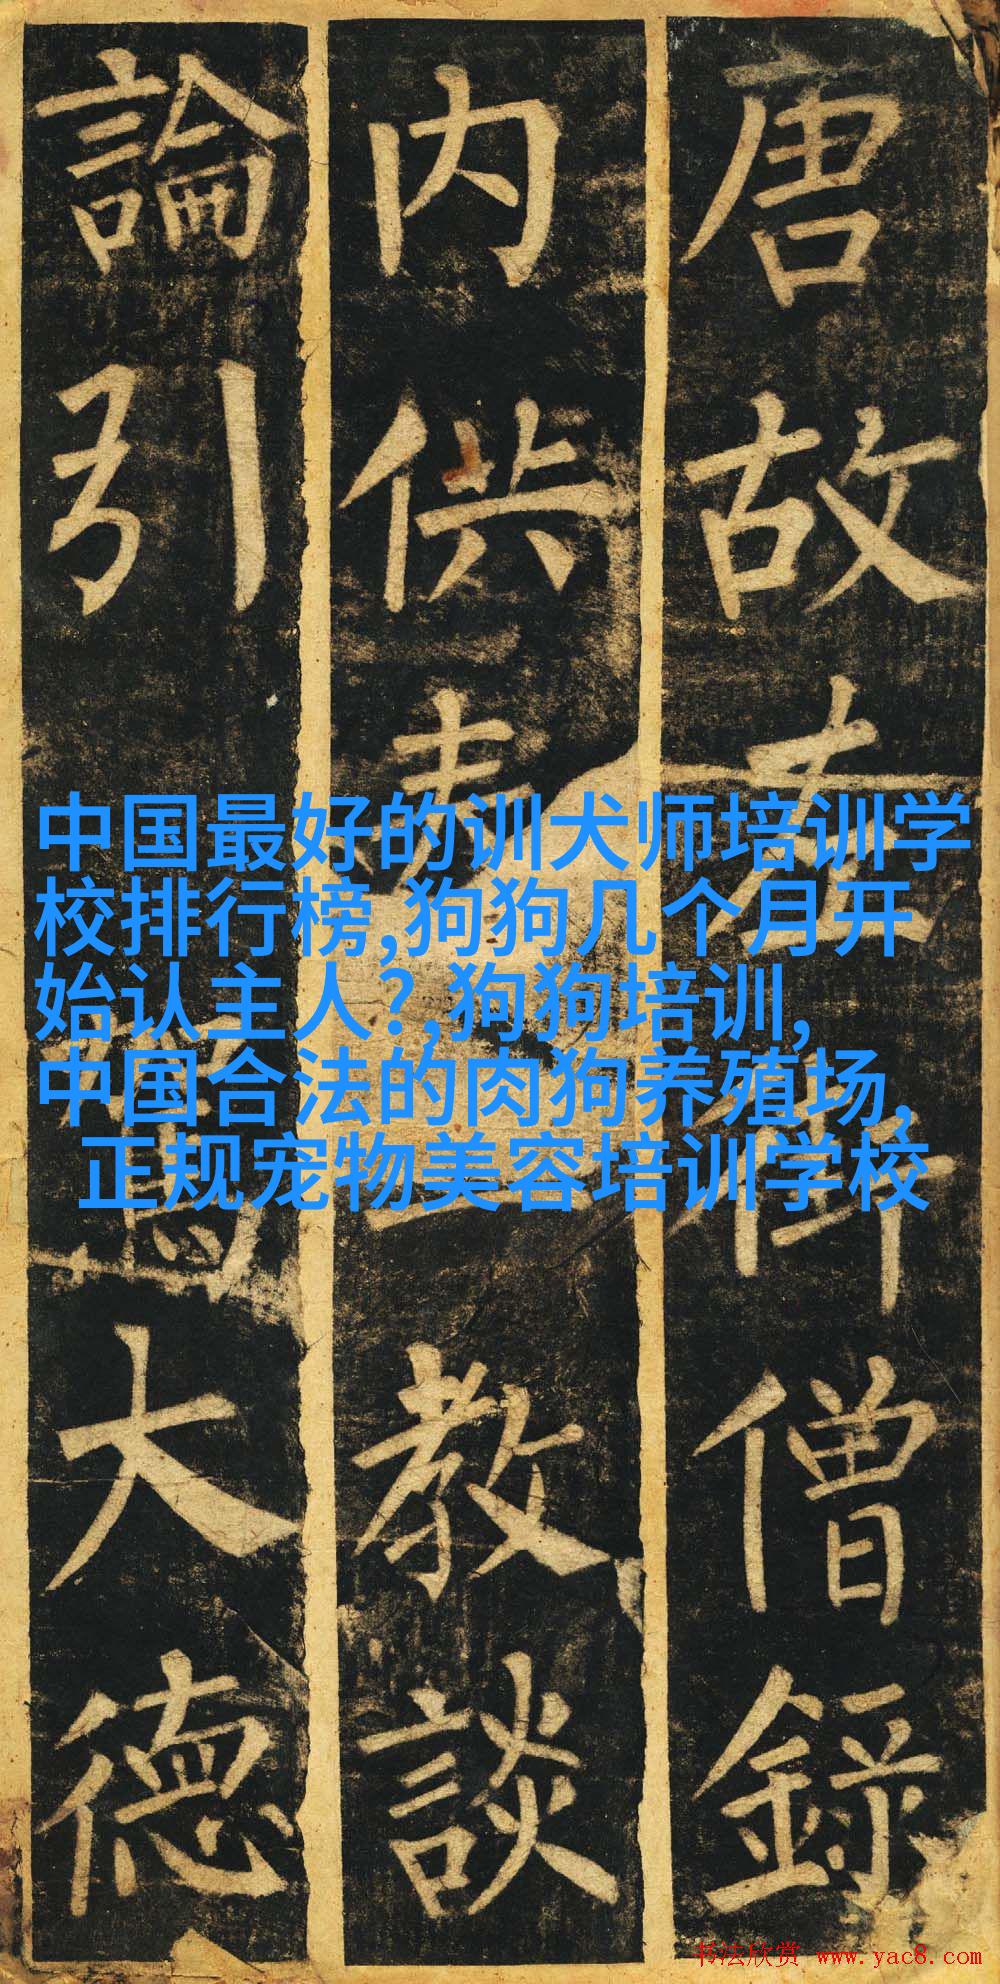 唐故左街僧錄
內供奉教談
論引大德
中国最好的训犬师培训学
校排行榜,狗狗几个月开
始认主人?,狗狗培训,
中国合法的肉狗养殖场,
正规宠物美容培训学校
书法欣赏 www.yac8.com